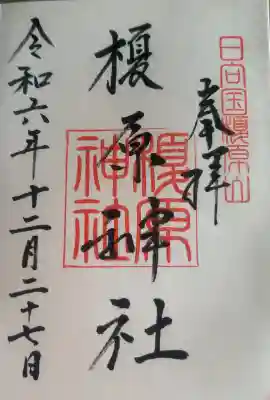 日向国榎原山
奉拝
榎原神社
榎原神社
令和六年十二月二十七日